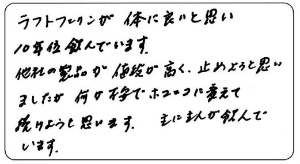 ラフトフェリンが 体に良いと思い
10年位飲んでいます。
他社の製品が 値段が高く、止めようと思い
ましたが 何か不安でホコニコに変えて
続けようと思います。 主に主人が飲んで
います。